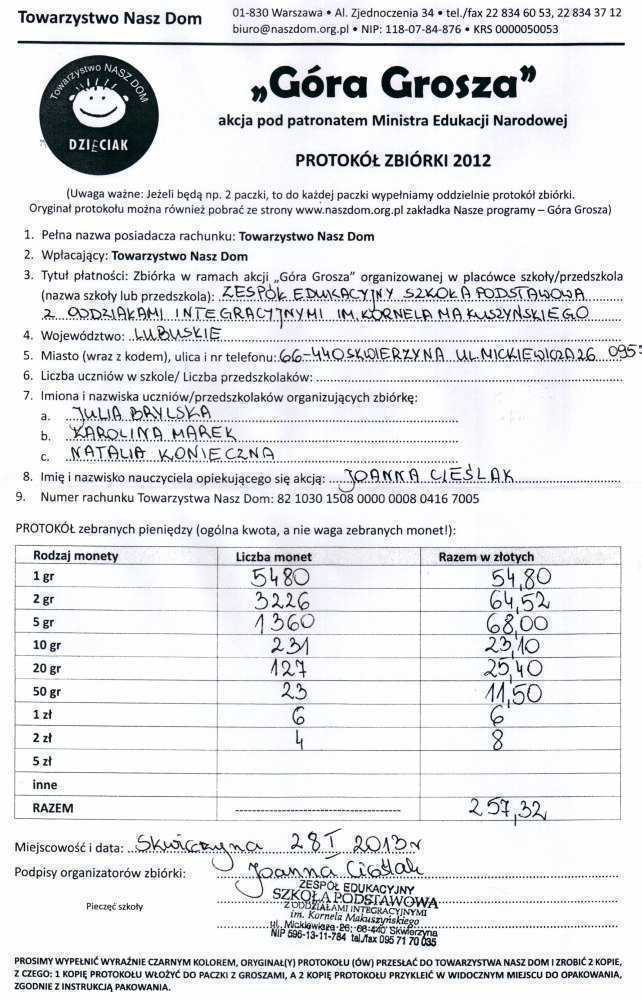 Towarzystwo Nasz Dom
01-830 Warszawa • Al. Zjednoczenia 34 • tel./fax 22 834 60 53, 22 834 37 12
biuro@naszdom.org.pl • NIP: 118-07-84-876 • KRS 0000050053
Towarzystwo NASZ DOM
DZIĘCIAK
„Góra Grosza”
akcja pod patronatem Ministra Edukacji Narodowej
PROTOKÓŁ ZBIÓRKI 2012
(Uwaga ważne: Jeżeli będą np. 2 paczki, to do każdej paczki wypełniamy oddzielnie protokół zbiórki.
Oryginał protokołu można również pobrać ze strony www.naszdom.org.pl zakładka Nasze programy – Góra Grosza)
1. Pełna nazwa posiadacza rachunku: Towarzystwo Nasz Dom
2. Wpłacający: Towarzystwo Nasz Dom
3. Tytuł płatności: Zbiórka w ramach akcji „Góra Grosza” organizowanej w placówce szkoły/przedszkola
(nazwa szkoły lub przedszkola): ZESPÓŁ EDUKACYJNY SZKOŁA PODSTAWOWA
Z ODDZIAŁAMI INTEGRACYJNYMI IM. KORNELA MAKUSZYŃSKIEGO
4. Województwo: LUBUSKIE
5. Miasto (wraz z kodem), ulica i nr telefonu: 66-440 SKWIERZYNA UL. MICKIEWICZA 26 095
6. Liczba uczniów w szkole/ Liczba przedszkolaków:
7. Imiona i nazwiska uczniów/przedszkolaków organizujących zbiórkę:
a. JULIA BRYLSKA
b. KAROLINA MAREK
c. NATALIA KONIECZNA
8. Imię i nazwisko nauczyciela opiekującego się akcją: JOANNA CIEŚLAK
9. Numer rachunku Towarzystwa Nasz Dom: 82 1030 1508 0000 0008 0416 7005
PROTOKÓŁ zebranych pieniędzy (ogólna kwota, a nie waga zebranych monet!):
Rodzaj monety Liczba monet Razem w złotych
1 gr 5480 54,80
2 gr 3226 64,52
5 gr 1360 68,00
10 gr 231 23,10
20 gr 127 25,40
50 gr 23 11,50
1 zł 6 6
2 zł 4 8
5 zł
inne
RAZEM 257,32
Miejscowość i data: Skwierzyna 28 I 2013 r
Podpisy organizatorów zbiórki: Joanna Cieślak
Pieczęć szkoły
ZESPÓŁ EDUKACYJNY
SZKOŁA PODSTAWOWA
Z ODDZIAŁAMI INTEGRACYJNYMI
im. Kornela Makuszyńskiego
ul. Mickiewicza 26; 66-440 Skwierzyna
NIP 596-13-11-784 tel./fax 095 71 70 035
PROSIMY WYPEŁNIĆ WYRAŹNIE CZARNYM KOLOREM, ORYGINAŁ(Y) PROTOKOŁU (ÓW) PRZESŁAĆ DO TOWARZYSTWA NASZ DOM I ZROBIĆ 2 KOPIE,
Z CZEGO: 1 KOPIĘ PROTOKOŁU WŁOŻYĆ DO PACZKI Z GROSZAMI, A 2 KOPIĘ PROTOKOŁU PRZYKLEIĆ W WIDOCZNYM MIEJSCU DO OPAKOWANIA,
ZGODNIE Z INSTRUKCJĄ PAKOWANIA.